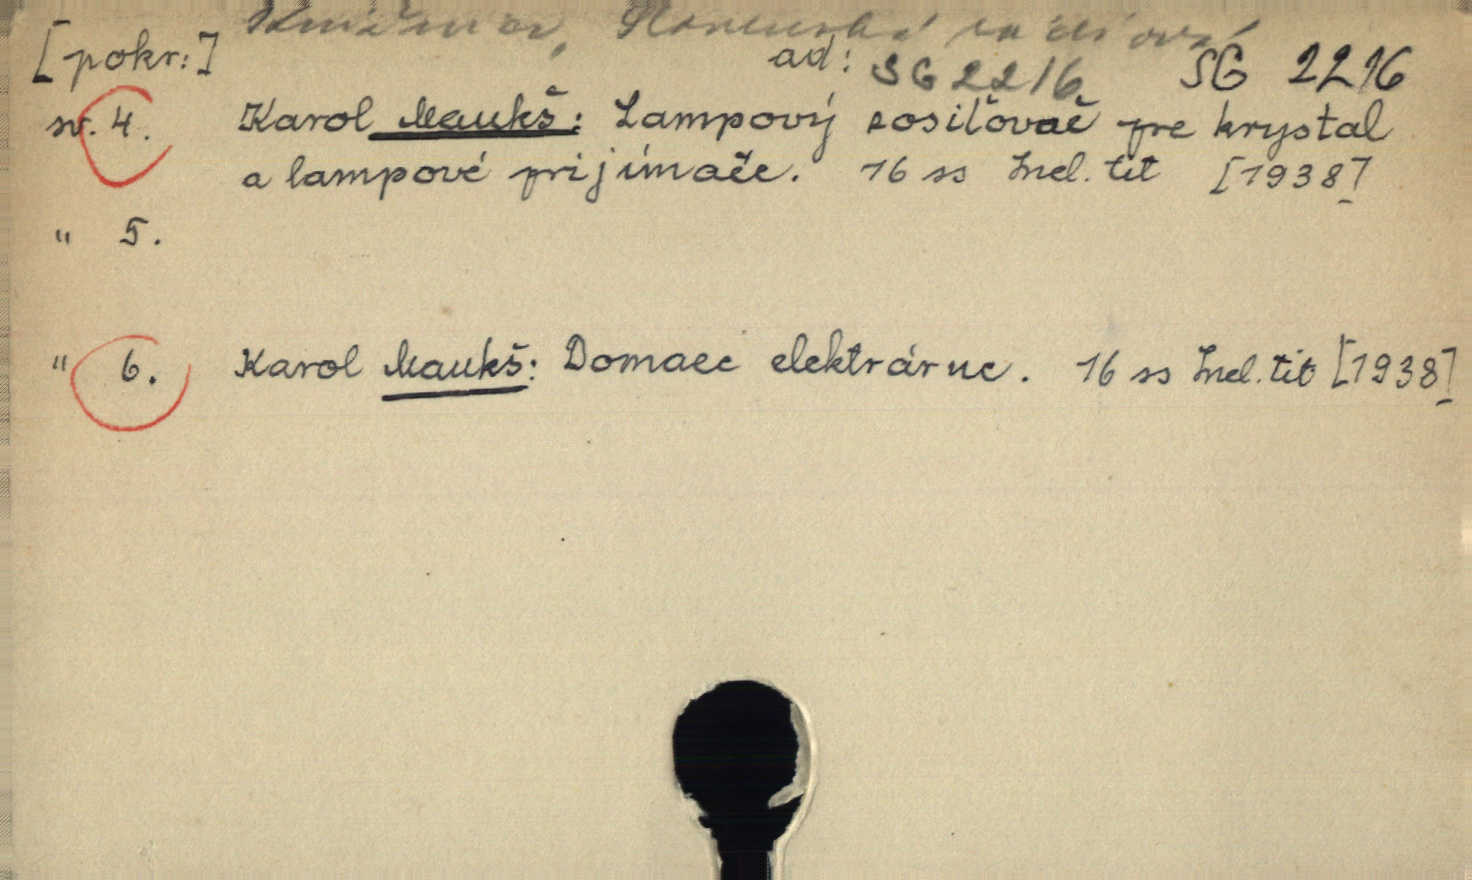 Knižnica, Slovenská rádiová
[pokr:] ad: SG 2216 SG 2216
sv. 4. Karol Maukš: Lampový sosilovač pre krystal
a lampové prijímače. 16 ss Incl. tit [1938]
" 5.
" 6. Karol Maukš: Domace elektrárne. 16 ss Incl. tit [1938]